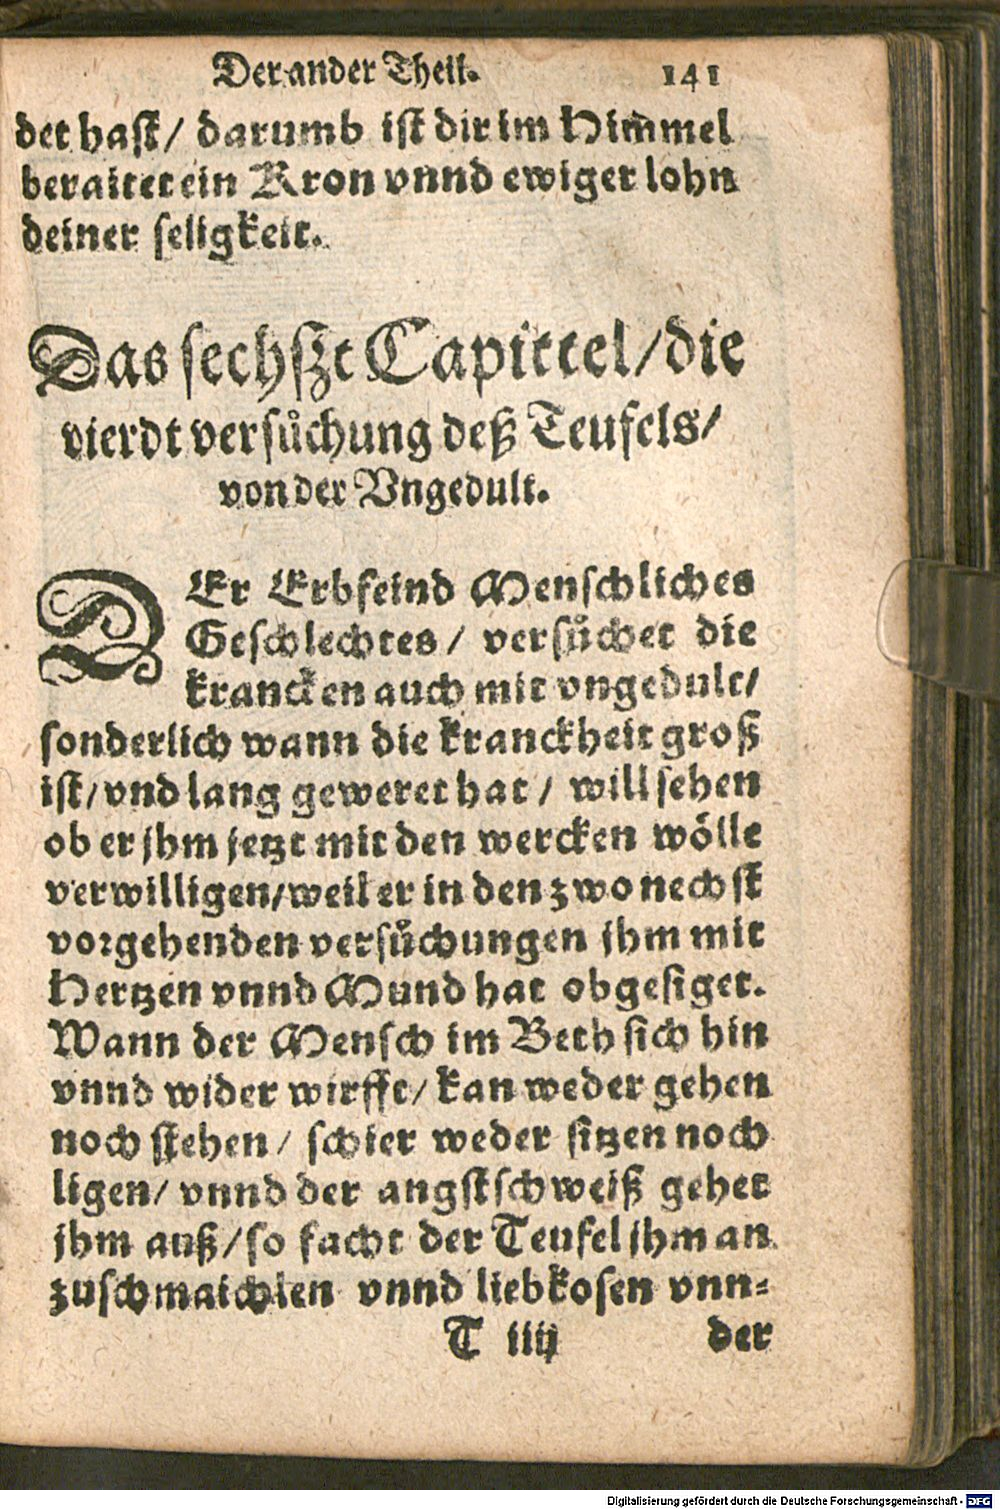 Der ander Theil. 141
det hast / darumb ist dir im Himmel
beraitet ein Kron vnnd ewiger lohn
deiner seligkeit.
Das sechßt Capittel / die
vierdt versůchung deß Teufels /
von der Vngedult.
DEr Erbfeind Menschliches
Geschlechtes / versůchet die
krancken auch mit vngedult /
sonderlich wann die kranckheit groß
ist / vnd lang geweret hat / will sehen
ob er jhm jetzt mit den wercken wölle
verwilligen / weil er in den zwo nechst
vorgehenden versůchungen jhm mit
Hertzen vnnd Mund hat obgesiget.
Wann der Mensch im Beth sich hin
vnnd wider wirfft / kan weder gehen
noch stehen / schier weder sitzen noch
ligen / vnnd der angstschweiß gehet
jhm auß / so facht der Teufel jhm an
zuschmaichlen vnnd liebkosen vnn-
T iiij der
Digitalisierung gefördert durch die Deutsche Forschungsgemeinschaft - DFG